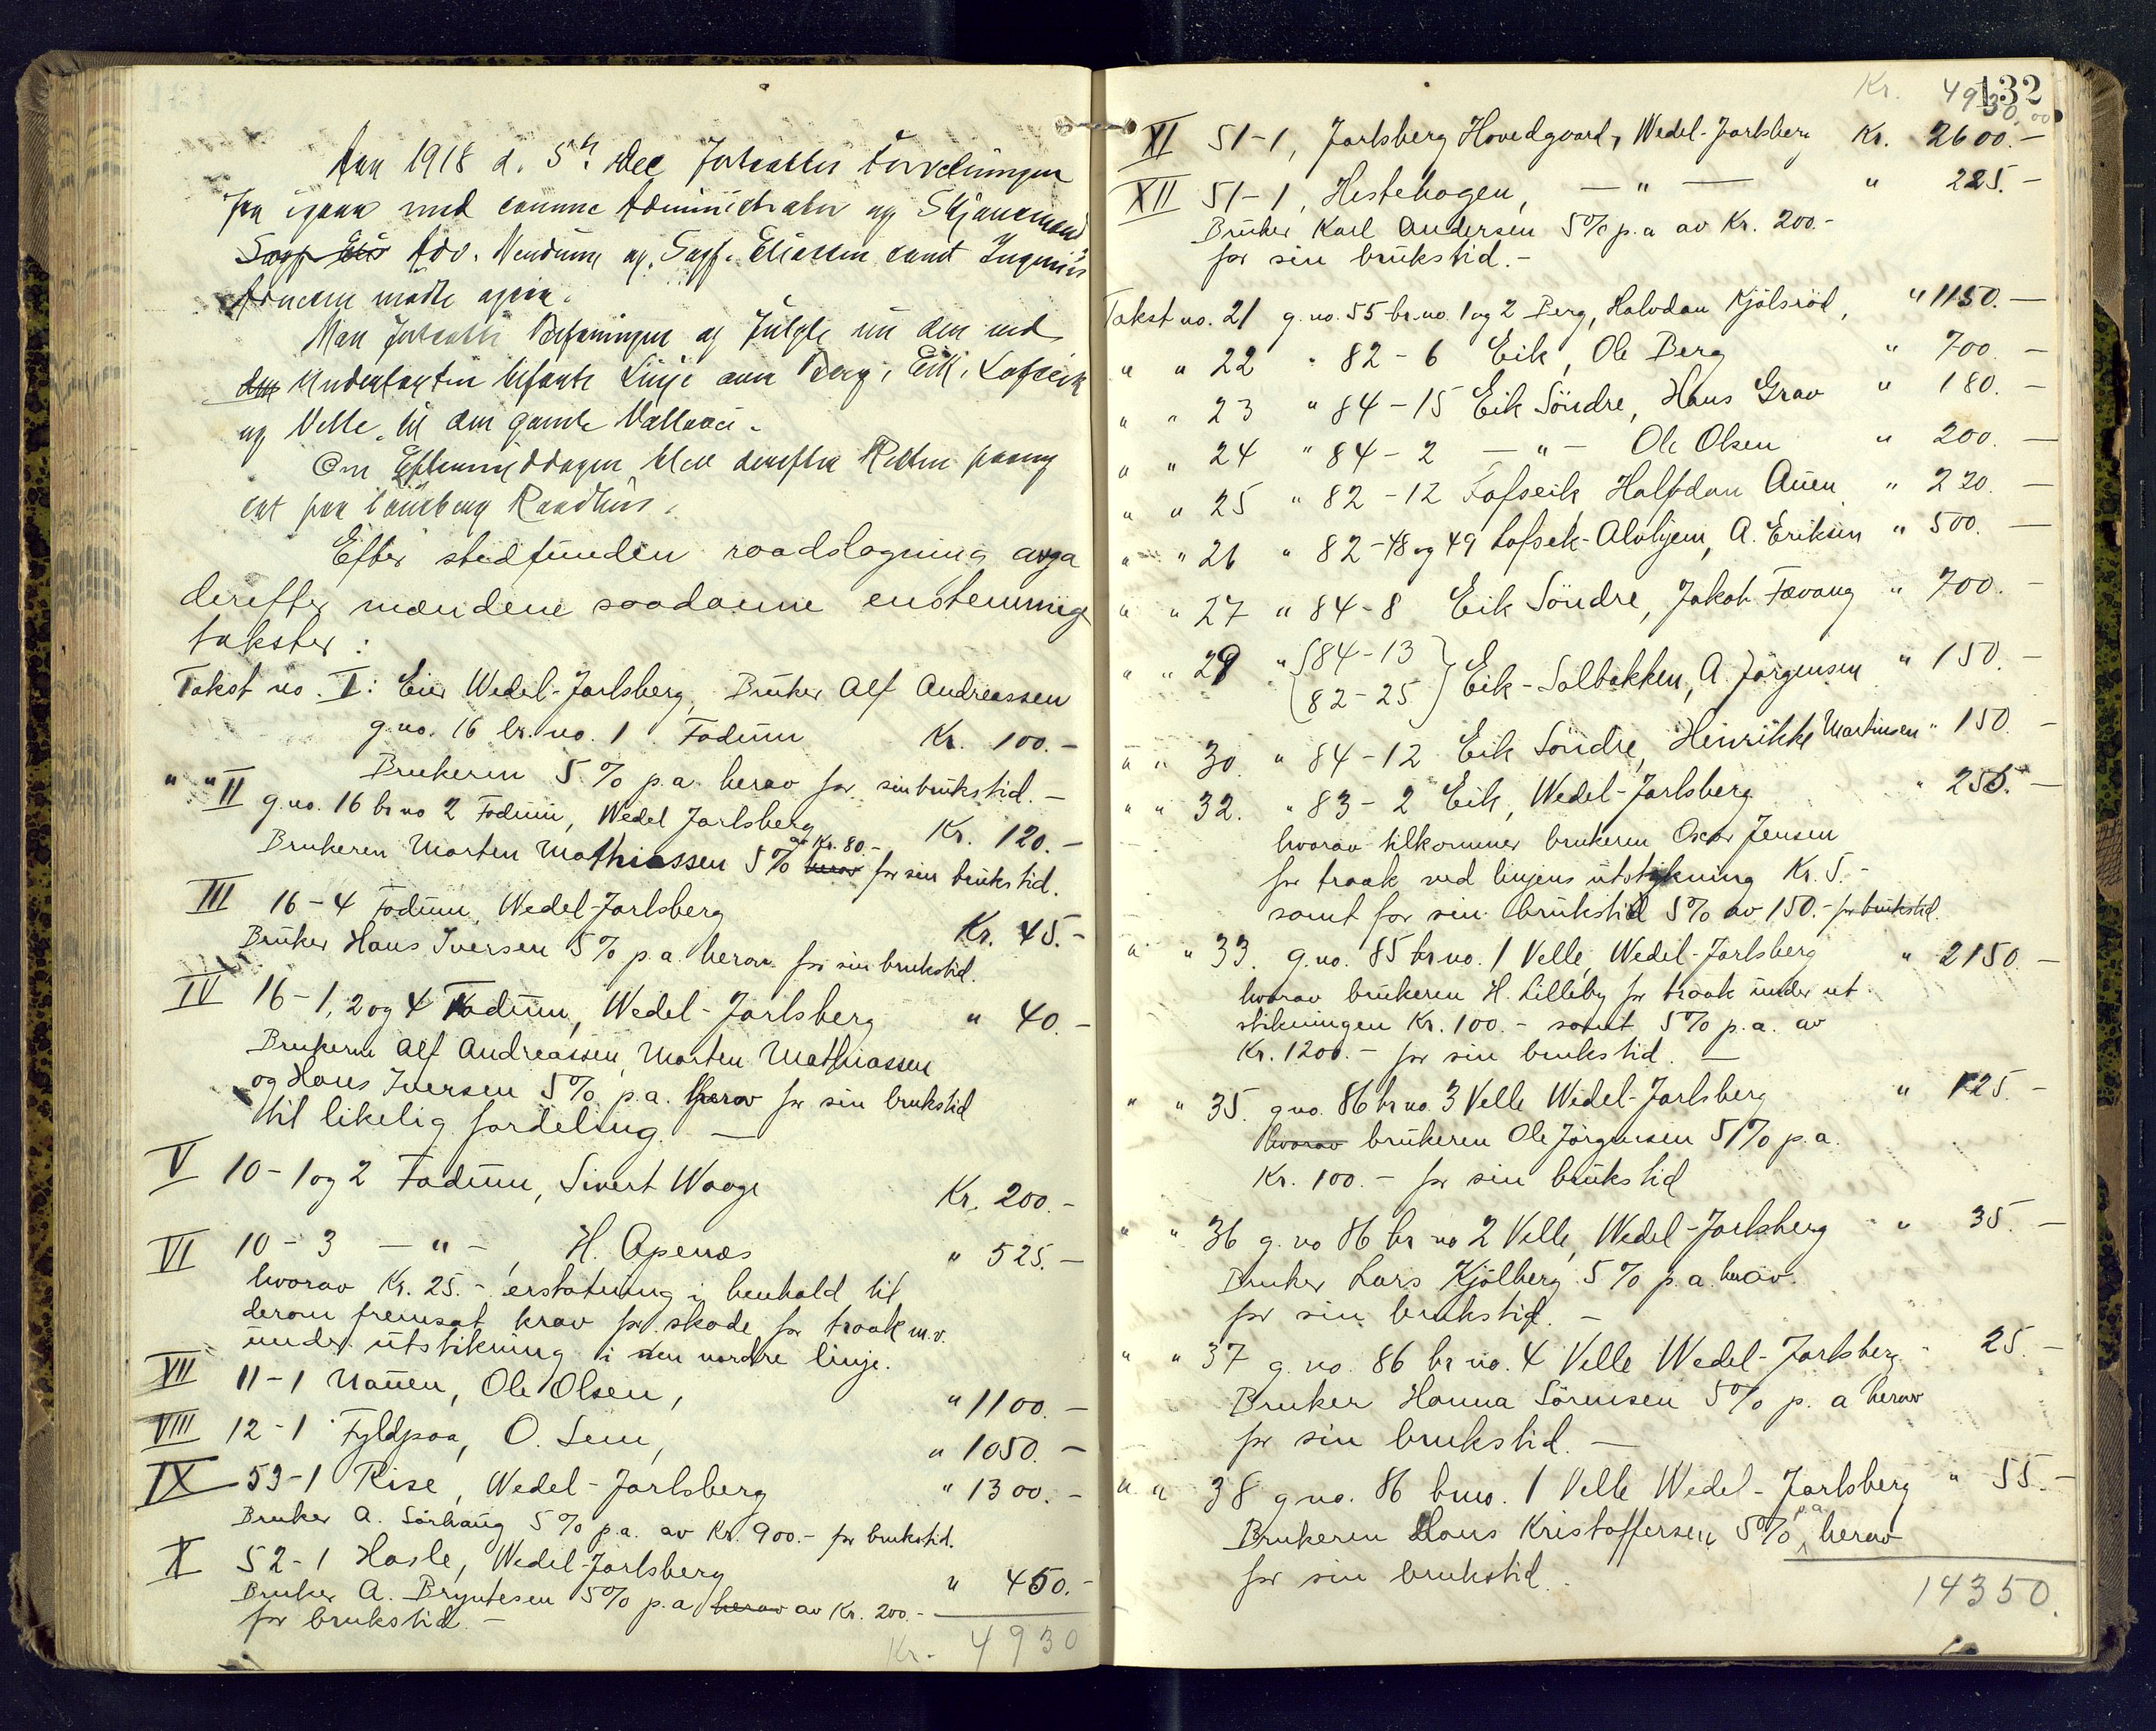 Aar 1918 d. 5te Dec fortsattes Forretningen
fra igaar med samme Administrator og Skjønsmænd
Adv. og Sagf. Eliassen samt Ingeniør
møtte ogsaa.
Man fortsatte Befaringen og fulgte nu den ved
den Undertakster befarte Linje over Berg, Eik, Lofseik
og Velle til den gamle
Om Eftermiddagen blev derefter Retten paany
sat paa Tønsberg Raadhus.
Efter stedfunden raadslagning avga
derefter mændene saadanne enstemmige
takster:
Takst no. I: Eier Wedel-Jarlsberg, Bruker Alf Andreassen
g.no. 16 br.no. 1 Fadum Kr. 100.-
Brukeren 5 % p.a. herav for sin brukstid.-
" " II g.no. 16 br no 2 Fadum, Wedel Jarlsberg Kr. 120.-
Brukeren Morten Mathiassen 5 % herav av Kr. 80.- for sin brukstid.
III 16-4 Fadum, Wedel-Jarlsberg Kr. 45.-
Bruker Hans Iversen 5 % p.a. herav for sin brukstid.
IV 16-1, 2 og 4 Fadum, Wedel-Jarlsberg " 40.-
Brukerne Alf Andreassen, Morten Mathiassen
og Hans Iversen 5 % p.a. herav for sin brukstid
til likelig fordeling. -
V 10-1 og 2 Fadum, Sivert Waage Kr. 200.-
VI 10-3 -"-, H. Apenæs " 525.-
hvorav Kr. 25.- erstatning i henhold til
derom fremsat krav for skade for traak m.v.
under utstikning i den nordre linje.
VII 11-1 Nauen, Ole Olsen, " 1100.-
VIII 12-1 Fyldpaa, O. Sem, " 1050.-
IX 53-1 Rise, Wedel-Jarlsberg " 1300.-
Bruker A. Sörhaug 5 % p.a. av Kr. 900.- for brukstid.
X 52-1 Hasle, Wedel-Jarlsberg " 450.-
Bruker A. Bryntesen 5 % p.a. herav av Kr. 200.-
for brukstid.-
Kr. 4930
132
Kr. 4930,00
XI 51-1, Jarlsberg Hovedgaard, Wedel-Jarlsberg Kr. 2600.-
XII 51-1, Hestehagen, -"- " 225.-
Bruker Karl Andersen 5 % p.a av Kr. 200.-
for sin brukstid.-
Takst no. 21 g.no. 55 br.no. 1 og 2 Berg, Halvdan Kjölsröd, " 1150.-
" " 22 " 82-6 Eik, Ole Berg " 700.-
" " 23 " 84-15 Eik Söndre, Hans Grav " 180.-
" " 24 " 84-2 -"- Ole Olsen " 200.-
" " 25 " 82-12 Lofseik, Halfdan Auen " 220.-
" " 26 " 82-48 og 49 Lofsek-Alvhjem, A. Eriksen " 500.-
" " 27 " 84-8 Eik Söndre, Jakob Fævang " 700.-
" " 29 " {84-13
{82-25} Eik-Solbakken, A. Jörgensen " 150.-
" " 30. " 84-12 Eik Söndre, Henrikke Martinsen " 150.-
" " 32. " 83-2 Eik, Wedel-Jarlsberg " 255.-
hvorav tilkommer brukeren Oscar Jensen
for traak ved linjens utstikning Kr. 5.-
samt for sin brukstid 5 % av 150.- for brukstid.
" " 33. g.no. 85 br.no. 1 Velle, Wedel-Jarlsberg " 2150.-
hvorav brukeren H. Lilleby for traak under ut
stikningen Kr. 100.- samt 5 % p.a. av
Kr. 1200.- for sin brukstid. -
" " 35. g.no. 86 br.no. 3 Velle Wedel-Jarlsberg " 125.-
hvorav brukeren Ole Jörgensen 5 % p.a.
Kr. 100.- for sin brukstid
" " 36 g.no 86 br no 2 Velle, Wedel-Jarlsberg " 35.-
Bruker Lars Kjölberg 5 % p.a. herav.
for sin brukstid. -
" " 37 g.no. 86 br no. 4 Velle Wedel-Jarlsberg - 25.-
Bruker Hanna Sörensen 5 % p.a herav
for sin brukstid. -
" " 38 g.no. 86 br.no. 1 Velle Wedel-Jarlsberg " 55.-
Brukeren Hans Kristoffersen 5 % p.a herav
for sin brukstid.
14350.